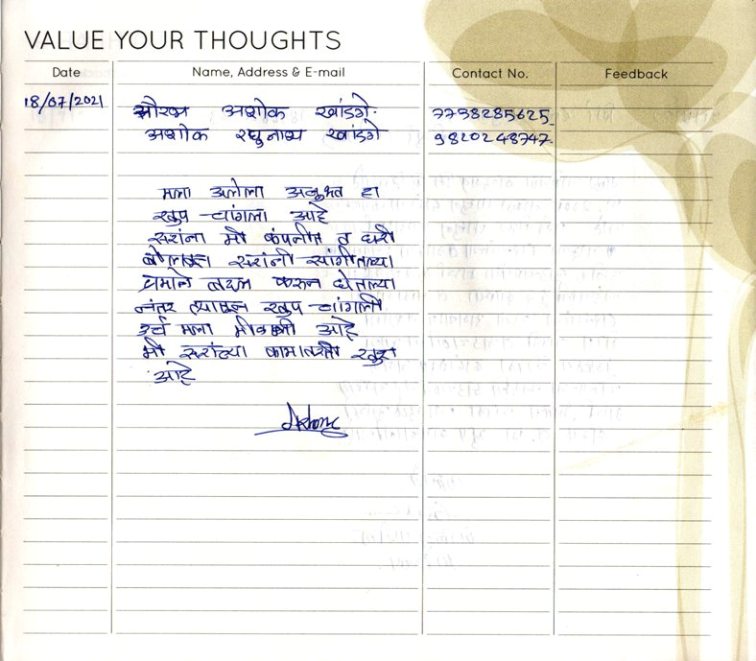 VALUE YOUR THOUGHTS
Date Name, Address & E-mail Contact No. Feedback
18/07/2021 सौरभ अशोक खांडगे. 7798285625.
अशोक रघुनाथ खांडगे 9820248747.
मला आलेला अनुभव हा
खुप चांगला आहे
सरांना मी कंपनीत व घरी
बोलावून सरांनी सांगीतल्या
प्रमाणे करुन घेतल्या
नंतर त्यापासून खुप चांगली
मला मीळाली आहे
मी सरांच्या कामावरती खुश
आहे
Ashok